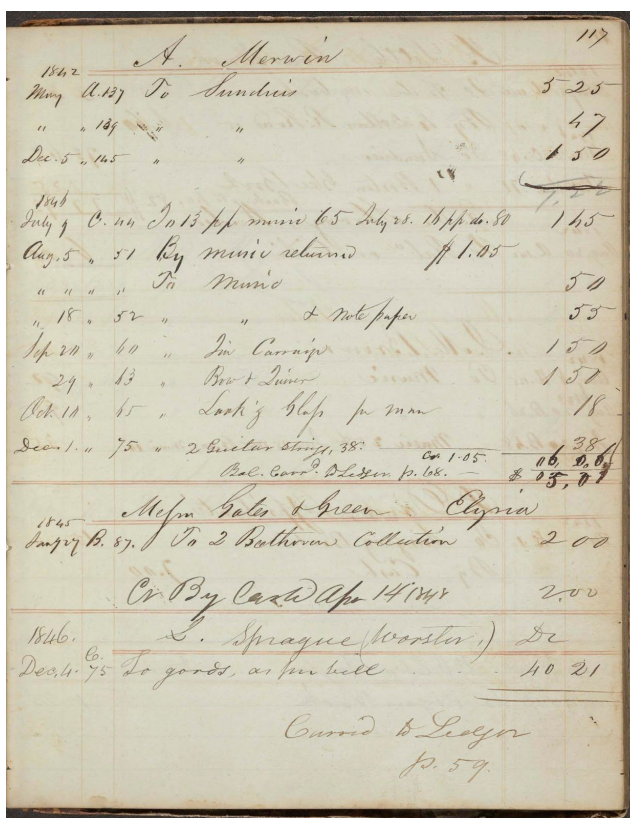 117
A. Merwin
1842
May A. 137 To Sundries 5 25
" " 139 " " 47
Dec. 5 " 145 " " 1 50
7,22
1846
July 9 C. 44 To 13 pp music 65 July 28. 16 pp do. 80 1 45
Aug. 5 " 51 By music returned $1.05
" " " " To Music 50
" 18 " 52 " " & Note paper 55
Sep 20 " 60 " Tin Carriage 1 50
29 " 63 " Bow & Quiver 1 50
Oct. 10 " 65 " Look'g Glass pr man 18
Dec 1. " 75 " 2 Guitar Strings, 38. 38
Cr 1.05.
Bal. Carrd. to Ledger p. 68. $ 5,01
Messrs Gates & Green Elyria
1845
Jany 27 B. 87. To 2 Beethoven Collection 2 00
Cr By Cash Apr 14 1848 2.00
1846. L. Sprague (Worster,) Dr
Dec. 4. C. 75 To goods, as per bill 40 21
Carried to Ledger
p. 59.